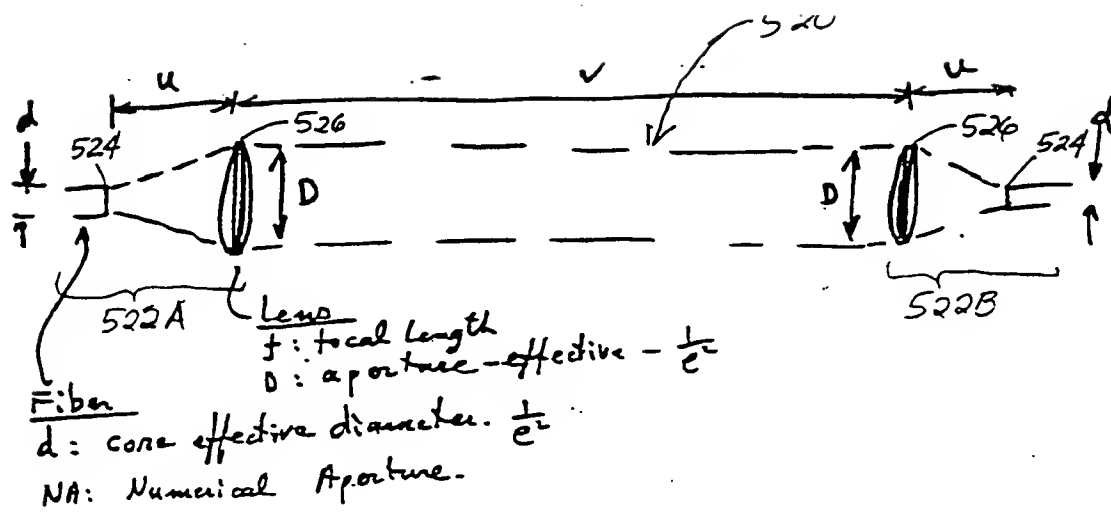 u
v
u
d
524
526
D
D
526
524
d
522A
522B
Lens
f: focal length
D: aperture - effective - 1/e²
Fiber
d: core effective diameter. 1/e²
NA: Numerical Aperture.